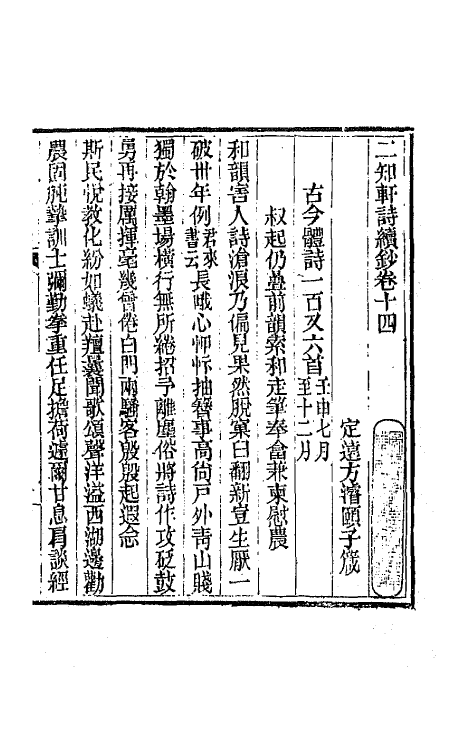 二知軒詩續鈔卷十四
定遠方濬頤子箴
古今體詩一百又六首壬申七月至十二月
叔起仍疊前韻索和走筆奉畣兼柬慰農
和韻害人詩滄浪乃偏見果然脫窠臼翻新豈生厭一
破卅年例君來書云長哦心忡忡抽簪事高尙戸外靑山賤
獨於翰墨場橫行無所綣招予離塵俗將詩作攻砭鼓
勇再接厲揮毫幾曾倦白門兩騷客殷殷起遐念
斯民悅敎化紛如蟻赴羶曩聞歌頌聲洋溢西湖邊勸
農固肫摯訓士彌勤拳重任足擔荷遽爾甘息肩談經